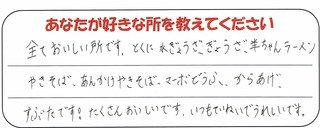 あなたが好きな所を教えてください
全ておいしい所です。とくに水ぎょうざ、ぎょうざ、半ちゃんラーメン
やきそば、あんかけやきそば、マーボどうふ、からあげ、
すぶたです。たくさんおいしいです。いつもていねいでうれしいです。